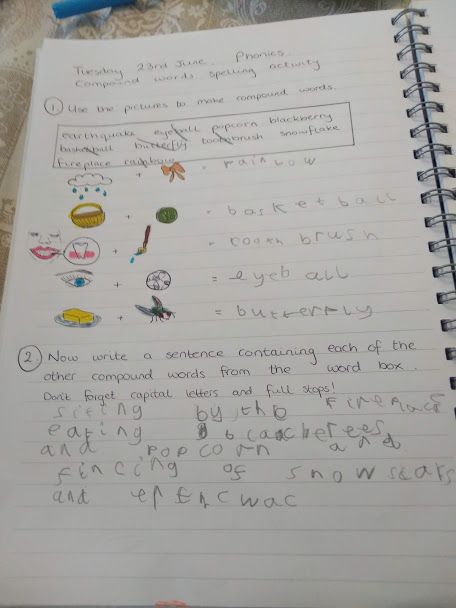 Tuesday 23rd June. Phonics.
Compound words spelling activity
1 Use the pictures to make compound words.
earthquake eyeball popcorn blackberry
basketball butterfly toothbrush snowflake
fireplace rainbow
+ = rainbow
+ = basketball
+ = tooth brush
+ = eyeball
+ = butterfly
2 Now write a sentence containing each of the
other compound words from the word box.
Don't forget capital letters and full stops!
siting by the fireplace
eating
and popcorn and
fincing of snowstars
and